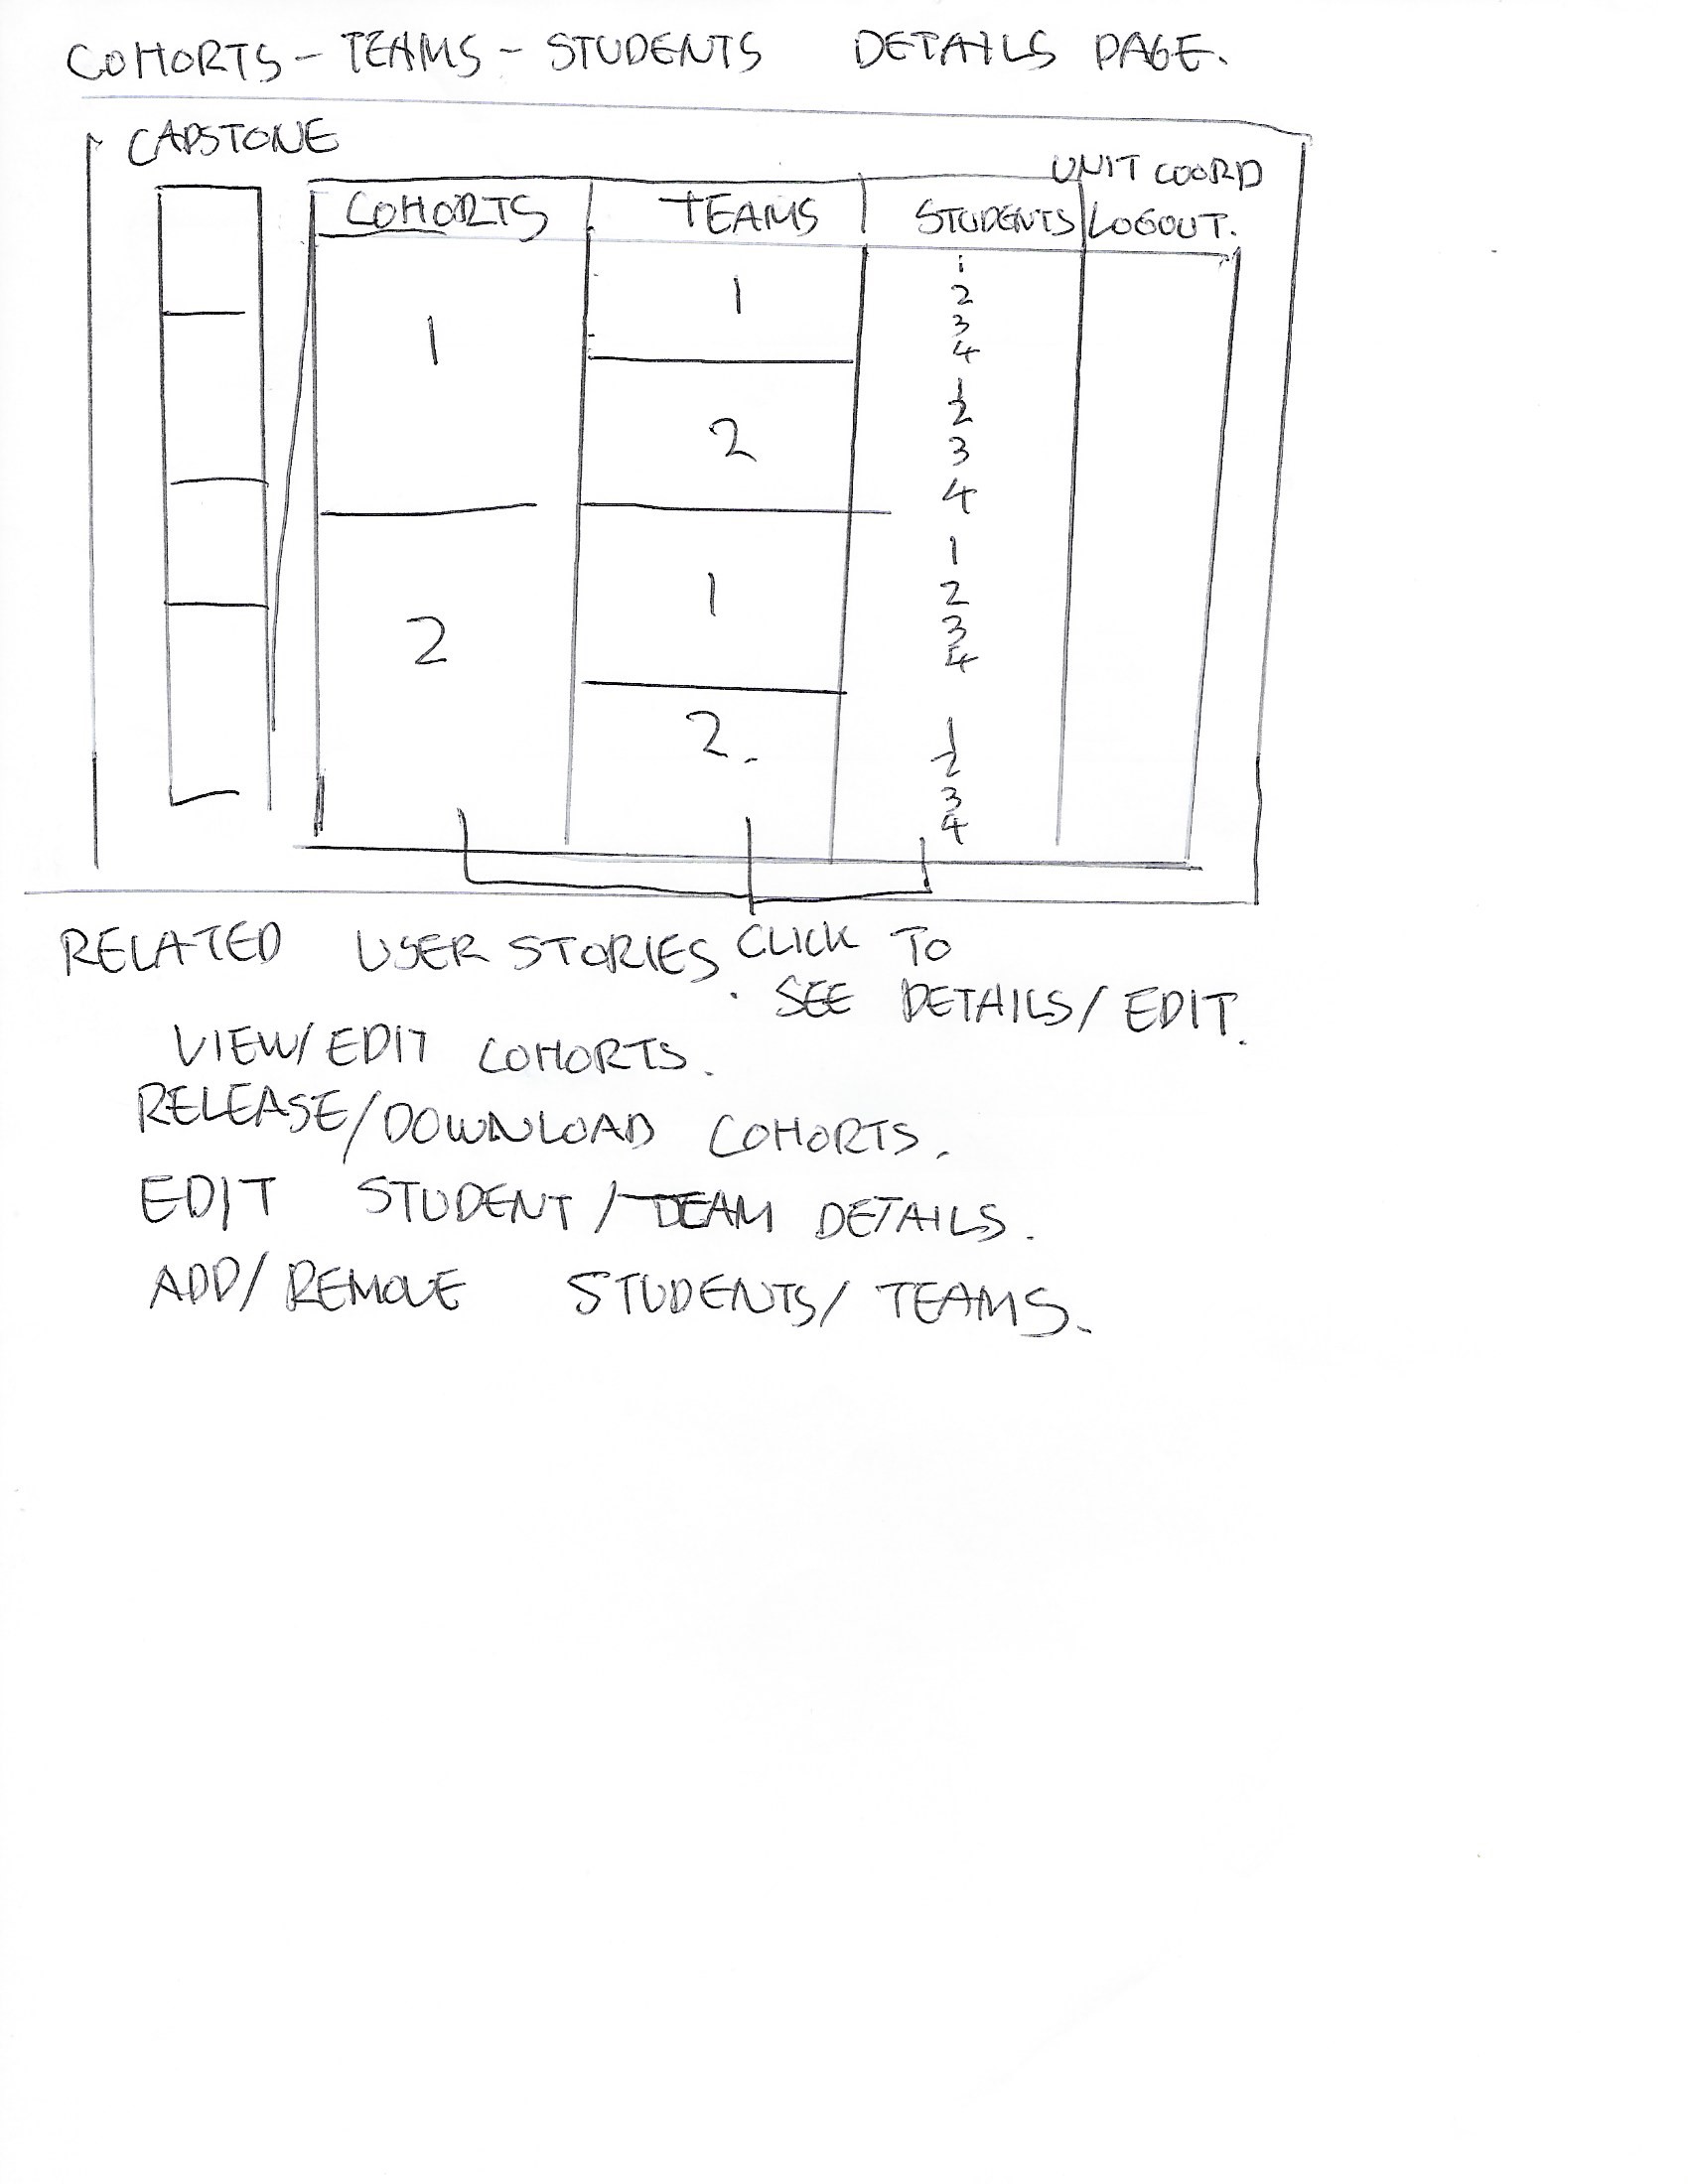 COHORTS - TEAMS - STUDENTS DETAILS PAGE.
CAPSTONE
UNIT COORD
COHORTS TEAMS STUDENTS LOGOUT.
1
1
1
2
3
4
2
1
2
3
4
2
1
1
2
3
4
2.
1
2
3
4
CLICK TO
SEE DETAILS/EDIT.
RELATED USER STORIES.
VIEW/EDIT COHORTS.
RELEASE/DOWNLOAD COHORTS.
EDIT STUDENT/TEAM DETAILS.
ADD/REMOVE STUDENTS/TEAMS.